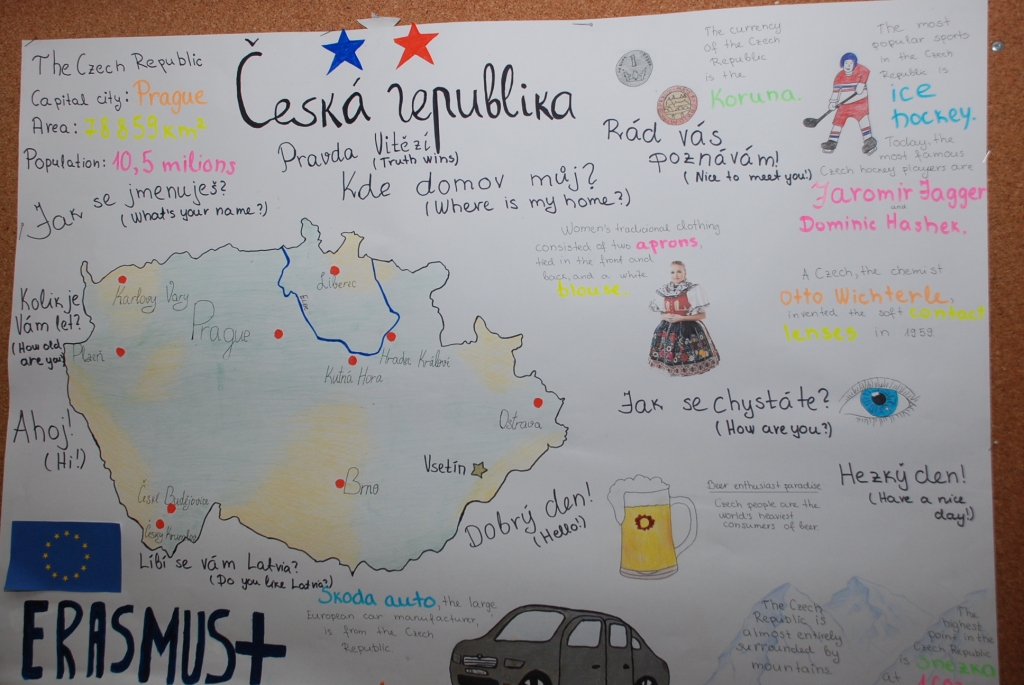 The Czech Republic
Capital city: Prague
Area: 78859 km²
Population: 10,5 milions
Česká republika
Pravda Vítězí
(Truth wins)
Kde domov můj?
(Where is my home?)
Jak se jmenuješ?
(What's your name?)
Rád vás
poznávám!
(Nice to meet you!)
The currency
of the Czech
Republic
is the
Koruna.
The most
popular sports
in the Czech
Republic is
ice
hockey.
Today, the
most famous
Czech hockey players are
Jaromir Jagger
and
Dominic Hashek.
Women's tradicional clothing
consisted of two aprons,
tied in the front and
back, and a white
blouse.
A Czech, the chemist
Otto Wichterle,
invented the soft contact
lenses in 1959
Kolik je
Vám let?
(How old
are you?)
Ahoj!
(Hi!)
Karlovy Vary
Liberec
Prague
Plzeň
Hradec Králové
Kutná Hora
Ostrava
Vsetín
Brno
České Budějovice
Český Krumlov
Jak se chystáte?
(How are you?)
Hezký den!
(Have a nice
day!)
Dobrý den!
(Hello!)
Beer enthusiast paradise
Czech people are the
world's heaviest
consumers of beer
Líbí se vám Latvia?
(Do you like Latvia?)
ERASMUS+
Škoda auto, the large
European car manufacturer,
is from the Czech
Republic.
The Czech
Republic is
almost entirely
surrounded by
mountains
The
highest
point in the
Czech Republic
is Sněžka
at